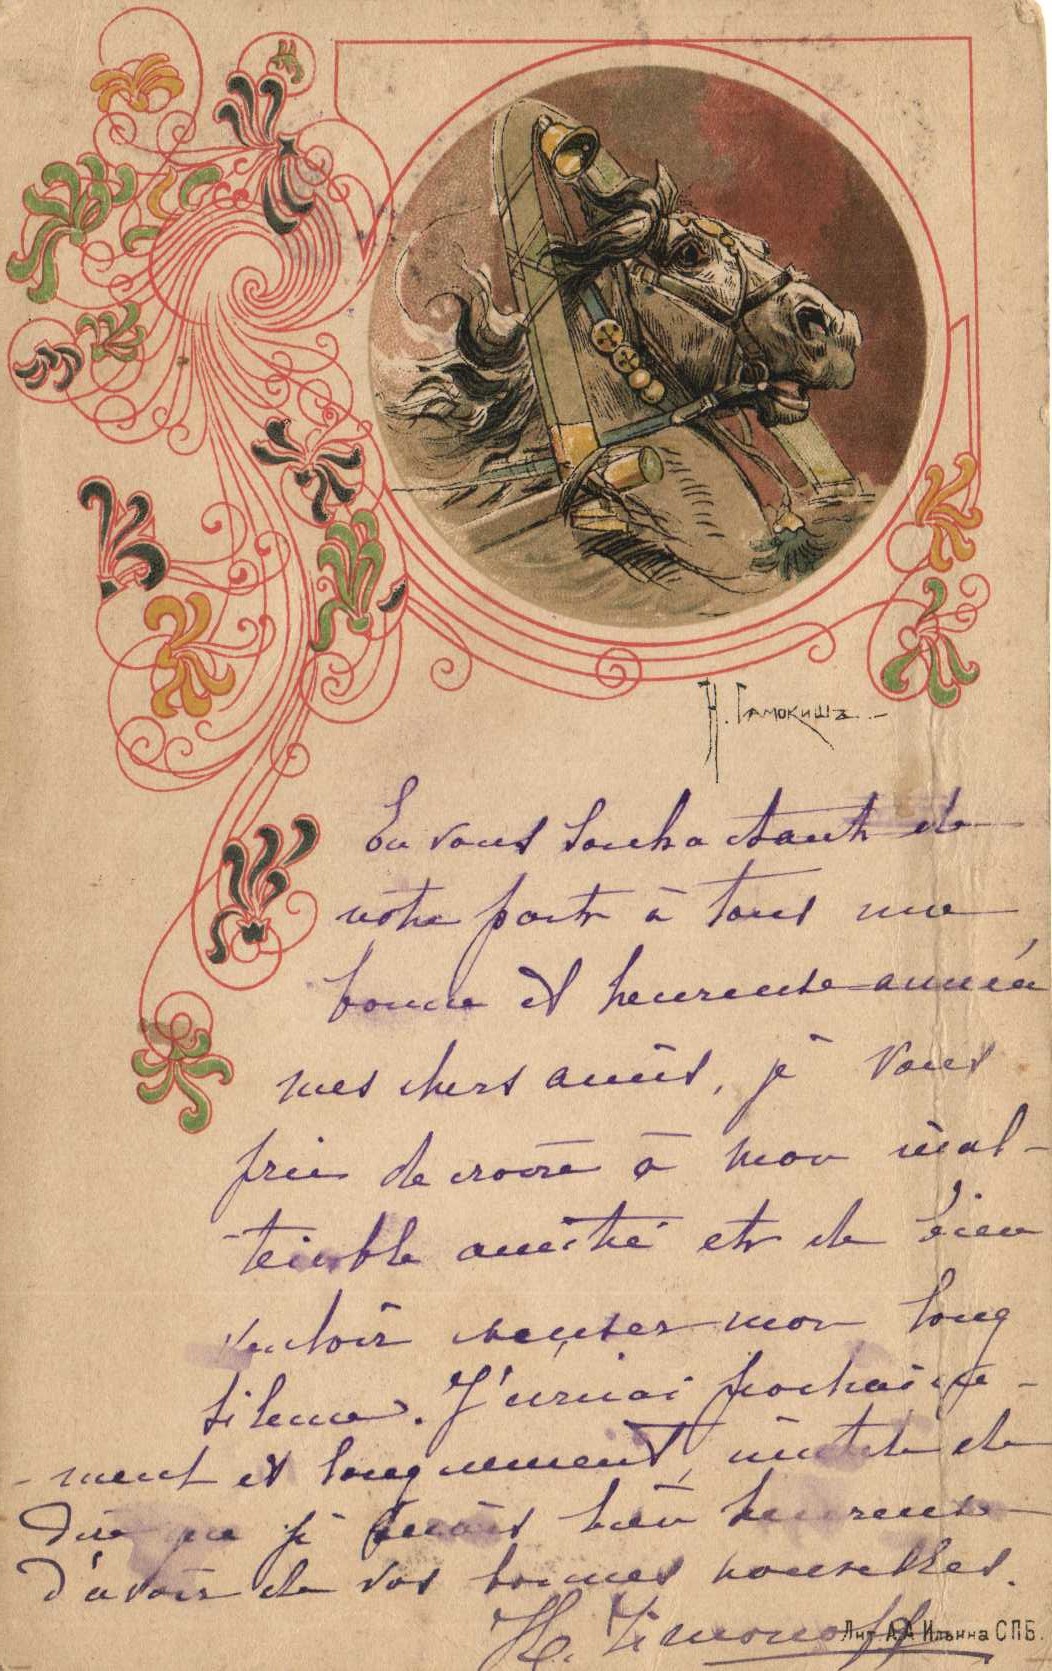 Н. Самокишъ.-
En vous souhaitant de
votre part à tous une
bonne et heureuse année
mes chers amis, je vous
prie de croire à mon inal-
térable amitié et de bien
vouloir excuser mon long
silence. J'écrirai prochaine-
-ment et longuement, inutile de
dire que je serais bien heureuse
d'avoir de vos bonnes nouvelles.
H. Timonoff
Лит. А. Ильина СПБ.